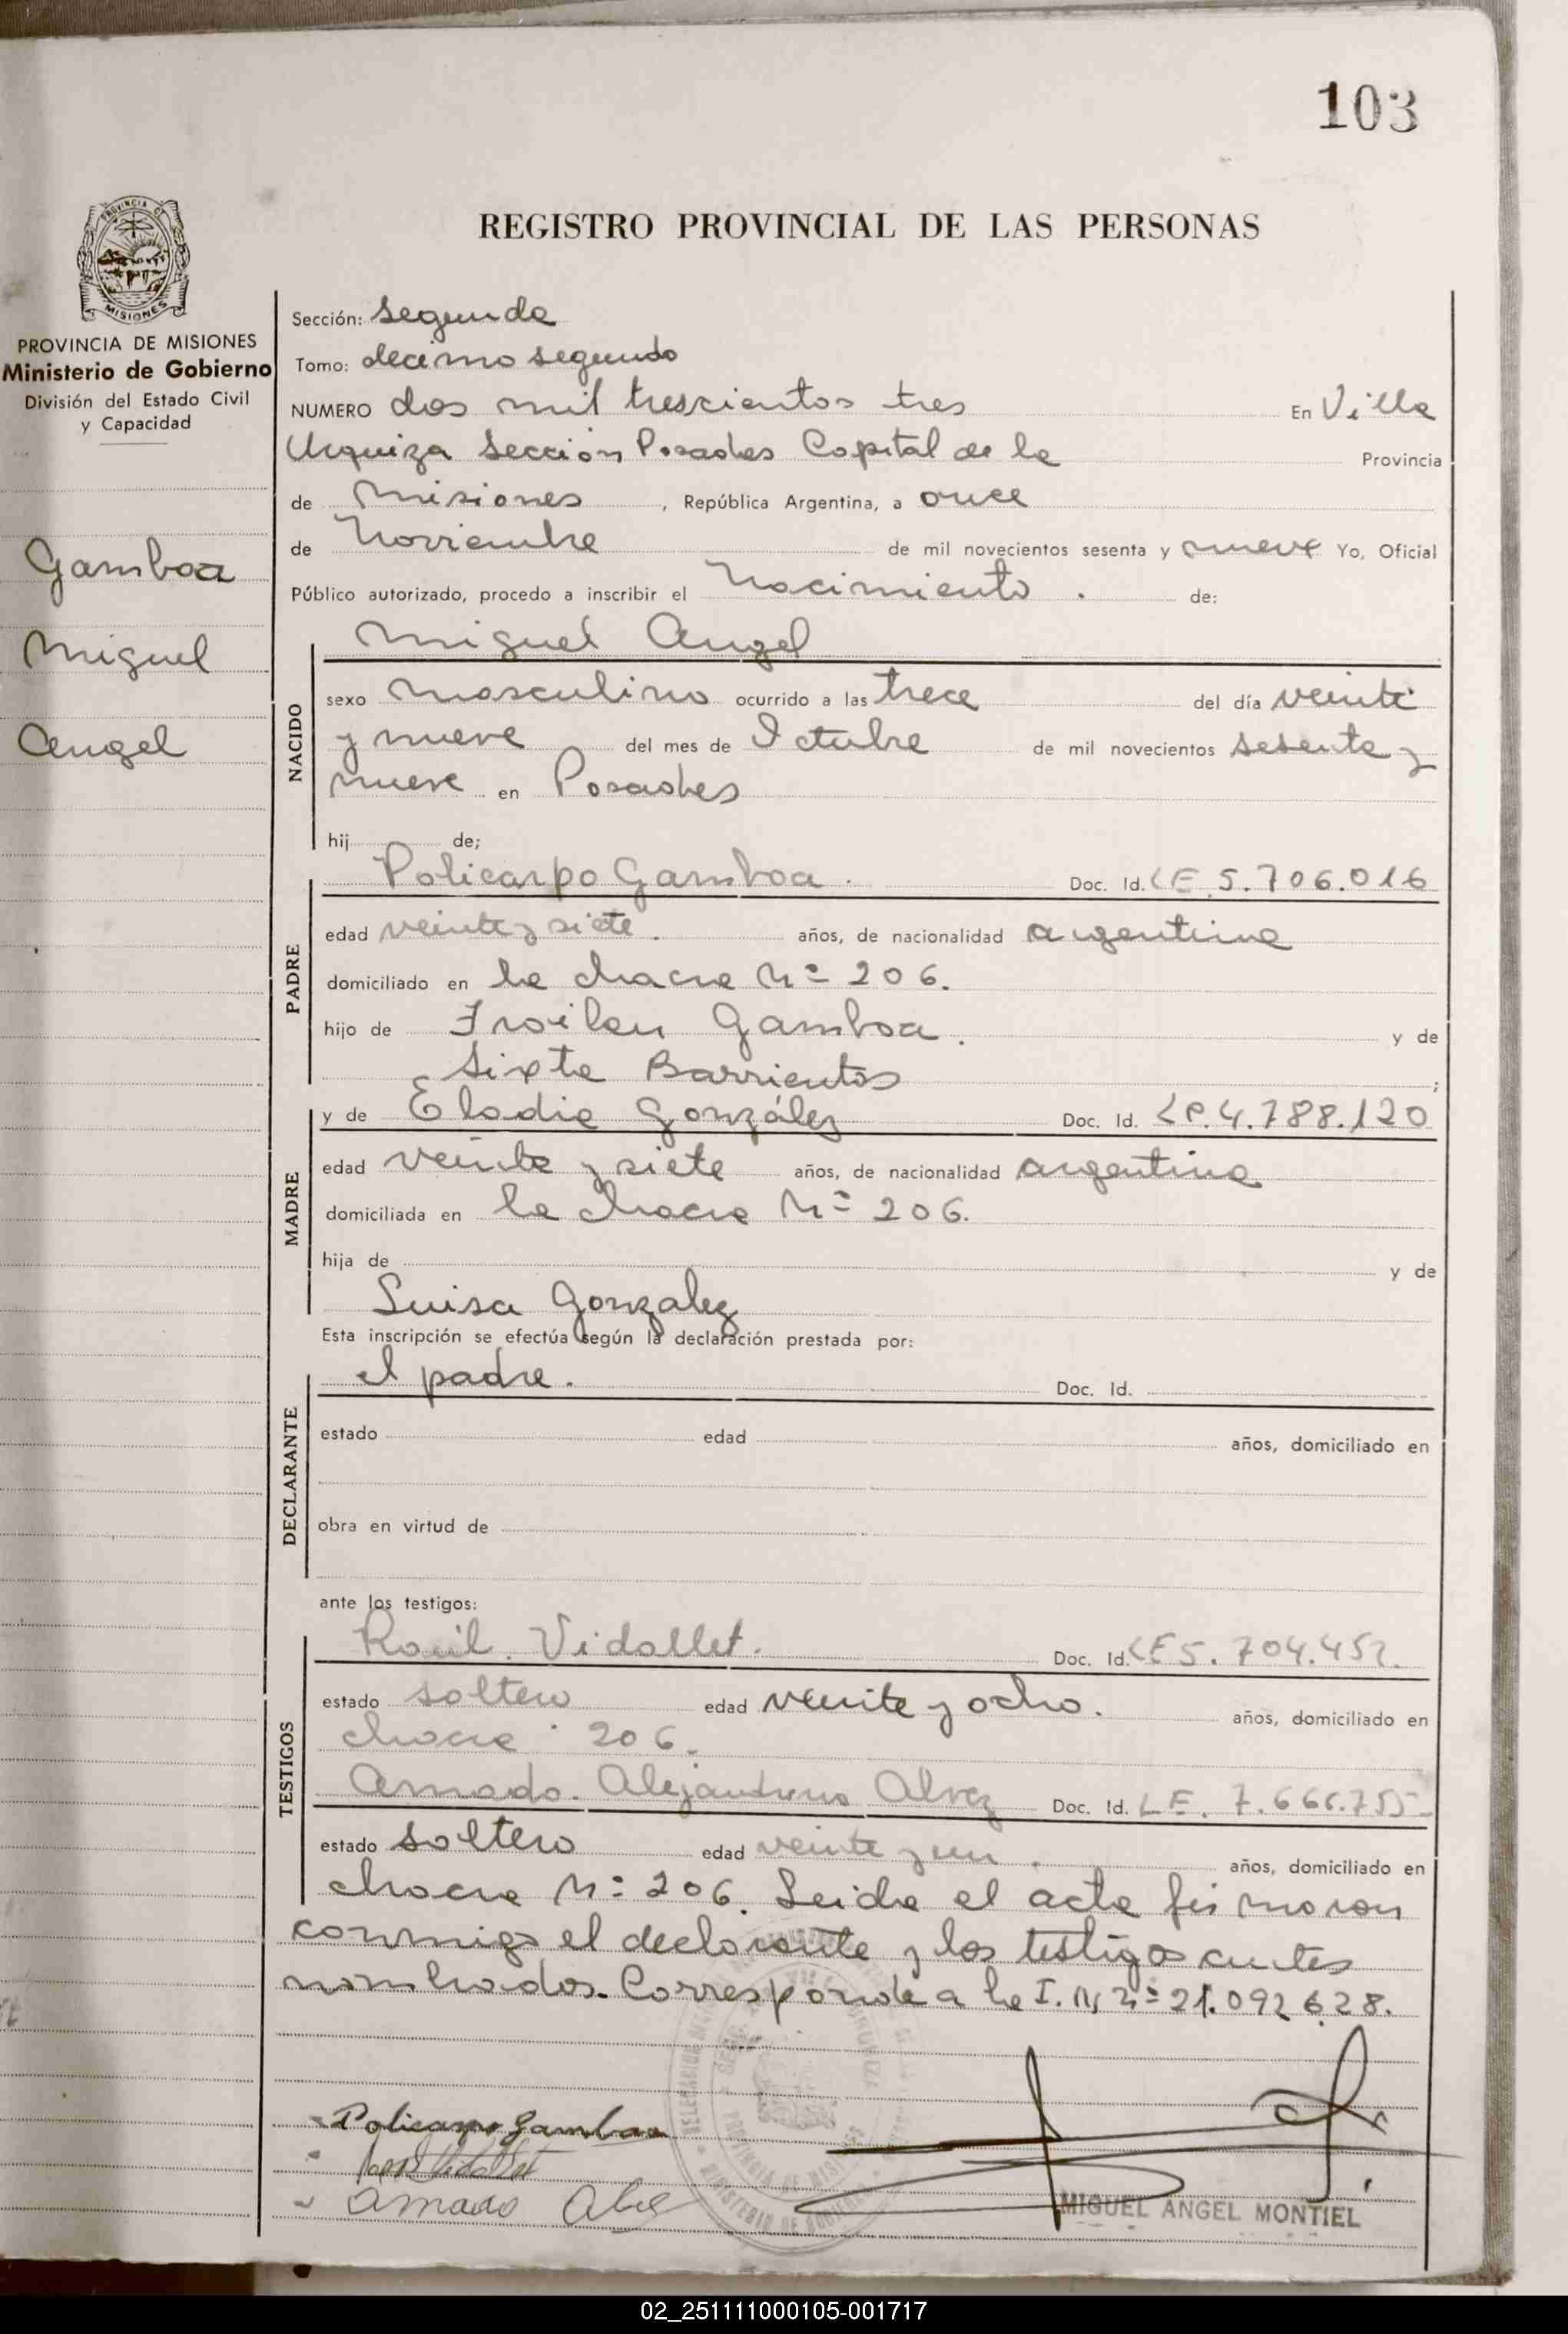 103
REGISTRO PROVINCIAL DE LAS PERSONAS
PROVINCIA DE MISIONES
Ministerio de Gobierno
División del Estado Civil
y Capacidad
Gamboa
Miguel
Angel
Sección: segunda
Tomo: decimo segundo
NUMERO dos mil trescientos tres En Villa
Urquiza Sección Posadas Capital de la Provincia
de Misiones, República Argentina, a once
de Noviembre de mil novecientos sesenta y nueve Yo, Oficial
Público autorizado, procedo a inscribir el Nacimiento. de:
Miguel Angel
NACIDO
sexo masculino ocurrido a las trece del día veinti
y nueve del mes de Octubre de mil novecientos sesenta y
nueve en Posadas
hij de;
Policarpo Gamboa. Doc. Id. LE 5.706.016
PADRE
edad veinte y siete. años, de nacionalidad argentina
domiciliado en la chacra Nº 206.
hijo de Froilan Gamboa. y de
Sixta Barrientos;
y de Eladia González Doc. Id. LC.4.788.120
MADRE
edad veinte y siete años, de nacionalidad argentina
domiciliada en la chacra Nº 206.
hija de y de
Luisa Gonzalez
Esta inscripción se efectúa según la declaración prestada por:
el padre. Doc. Id.
DECLARANTE
estado edad años, domiciliado en
obra en virtud de
ante los testigos:
Raúl. Vidallet. Doc. Id. LE 5.704.452.
TESTIGOS
estado soltero edad veinte y ocho. años, domiciliado en
chacra 206.
Amado. Alejandrino Alvez Doc. Id. LE. 7.666.755
estado soltero edad veinte y un. años, domiciliado en
chacra Nº 206. Leida el acta firmaron
conmigo el declarante y los testigos antes
nombrados. Corresponde a la I. N, Nº 21.092.628.
Policarpo Gamboa
Amado Alvez
MIGUEL ANGEL MONTIEL
02_251111000105-001717